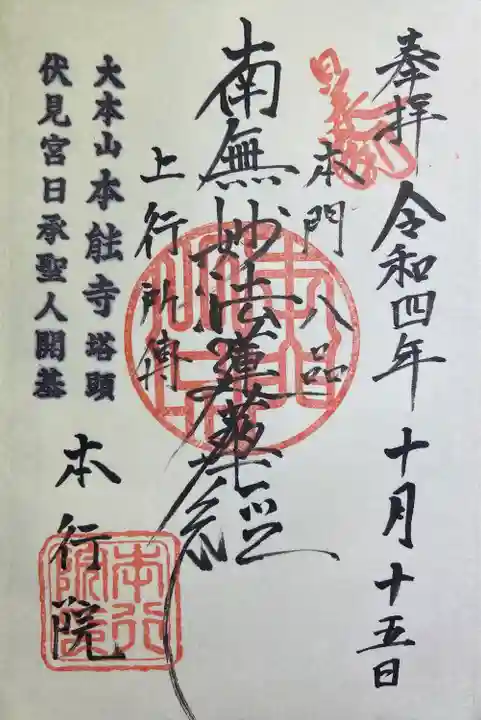 奉拝 令和四年 十月十五日
本門八品
南無妙法蓮華経
上行所傳
大本山本能寺塔頭
伏見宮日承聖人開基
本行院
本行院